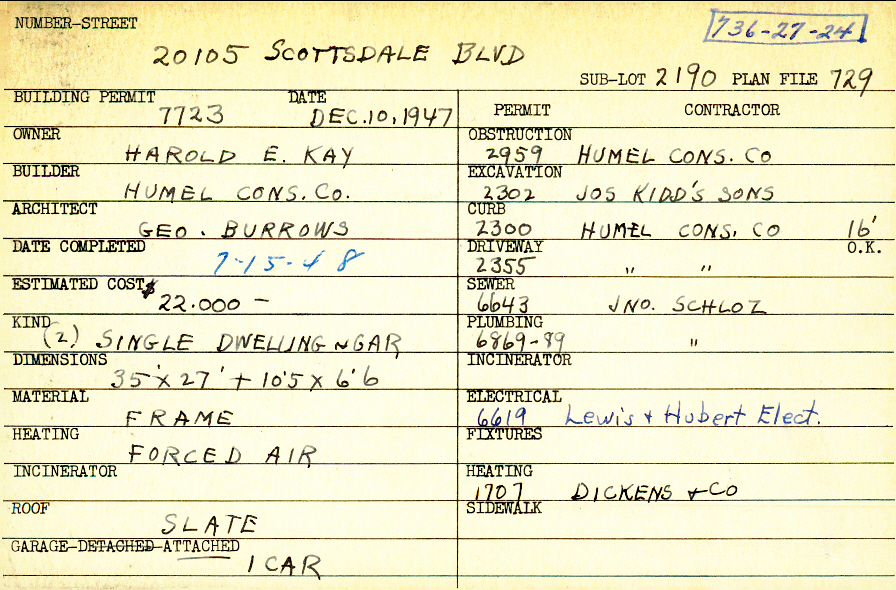 NUMBER-STREET
736-27-24
20105 SCOTTSDALE BLVD
SUB-LOT 2190 PLAN FILE 729
BUILDING PERMIT DATE
7723 DEC.10,1947
OWNER
HAROLD E. KAY
BUILDER
HUMEL CONS. Co.
ARCHITECT
GEO. BURROWS
DATE COMPLETED
7-15-48
ESTIMATED COST $
22.000 —
KIND
(2) SINGLE DWELLING ~ GAR
DIMENSIONS
35' x 27' + 10'5 x 6'6
MATERIAL
FRAME
HEATING
FORCED AIR
INCINERATOR
ROOF
SLATE
GARAGE-DETACHED-ATTACHED
1 CAR
PERMIT CONTRACTOR
OBSTRUCTION
2959 HUMEL CONS. CO
EXCAVATION
2302 JOS KIDD'S SONS
CURB
2300 HUMEL CONS. CO 16'
DRIVEWAY O.K.
2355 " "
SEWER
6643 JNO. SCHLOZ
PLUMBING
6869-89 "
INCINERATOR
ELECTRICAL
6619 Lewis + Hubert Elect.
FIXTURES
HEATING
1707 DICKENS + CO
SIDEWALK